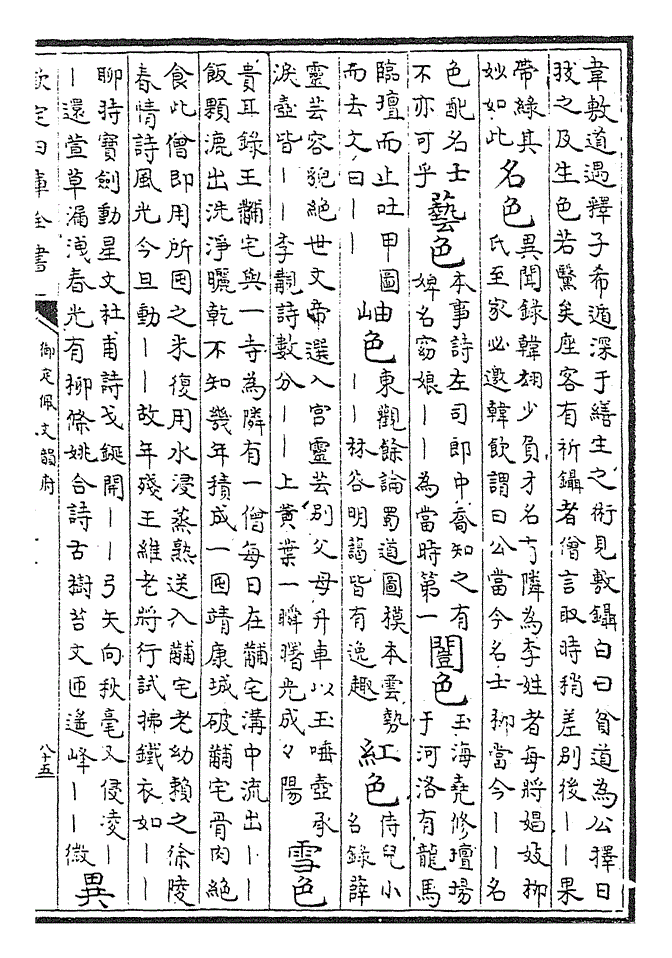 韋敷道遇釋子希遁深于繕主之術見敷鑷白曰貧道為公擇日
㧞之及生色若黳矣座客有祈鑷者僧言取時稍差別後——果
帶綠其
妙如此
名色
異聞錄韓翃少負才名隣為李姓者每將娼妓柳
氏至家必邀韓飲謂曰公當今名士柳當今——名
色配名士
不亦可乎
藝色
本事詩左司郎中喬知之有
婢名窈娘——為當時第一
闓色
玉海堯修壇場
于河洛有龍馬
臨壇而止吐甲圖
而去文曰——
岫色
東觀餘論蜀道圖摸本雲勢
——林谷明藹皆有逸趣
紅色
侍兒小
名錄薛
靈芸容貌絕世文帝選入宮靈芸別父母升車以玉唾壺承
淚壺皆——李覯詩數分——上黃葉一瞬曙光成夕陽
雪色
貴耳錄王黼宅與一寺為隣有一僧每日在黼宅溝中流出——
飯顆漉出洗淨曬乾不知幾年積成一囤靖康城破黼宅骨肉絕
食此僧即用所囤之米復用水浸蒸熟送入黼宅老幼賴之徐陵
春情詩風光今旦動——故年殘王維老將行試拂鐵衣如——
聊時寶劍動星文杜甫詩戈鋋開——弓矢向秋毫又侵凌—
—還萱草漏洩春光有柳條姚合詩古樹苔文匝遙峰——微
異
欽定四庫全書
御定佩文韻府
八十五